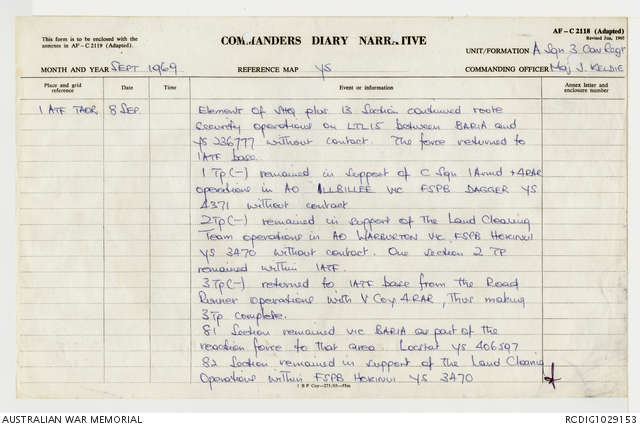 This form is to be enclosed with the
annexes in AF-C 2119 (Adapted).
COMMANDERS DIARY NARRATIVE
AF-C 2118 (Adapted)
Revised Jun, 1965
UNIT/FORMATION A Sqn 3 Cav Regt
MONTH AND YEAR SEPT 1969
REFERENCE MAP YS
COMMANDING OFFICER Maj J. KELDIE
Place and grid
reference
Date
Time
Event or information
Annex letter and
enclosure number
1 ATF TAOR 8 SEP.
Element of SHQ plus 13 Section continued route
security operations on LTL15 between BARIA and
YS 236777 without contact. The force returned to
1ATF base.
1 Tp(-) remained in support of C Sqn 1Armd + 4RAR
operations in AO ILLBILLEE vic FSPB DAGGER YS
4371 without contact
2Tp(-) remained in support of the Land Clearing
Team operations in AO WARBURTON vic FSPB HOKINUI
YS 3470 without contact. One section 2 TP
remained within 1ATF.
3 Tp(-) returned to 1ATF base from the Road
Runner operations with V Coy 4RAR, thus making
3Tp complete.
81 Section remained vic BARIA as part of the
reaction force to that area. Locstat YS 406597
82 Section remained in support of the Land Clearing
Operations within FSPB HOKINUI YS 3470
1 B P Coy—275/65—55m
AUSTRALIAN WAR MEMORIAL
RCDIG1029153